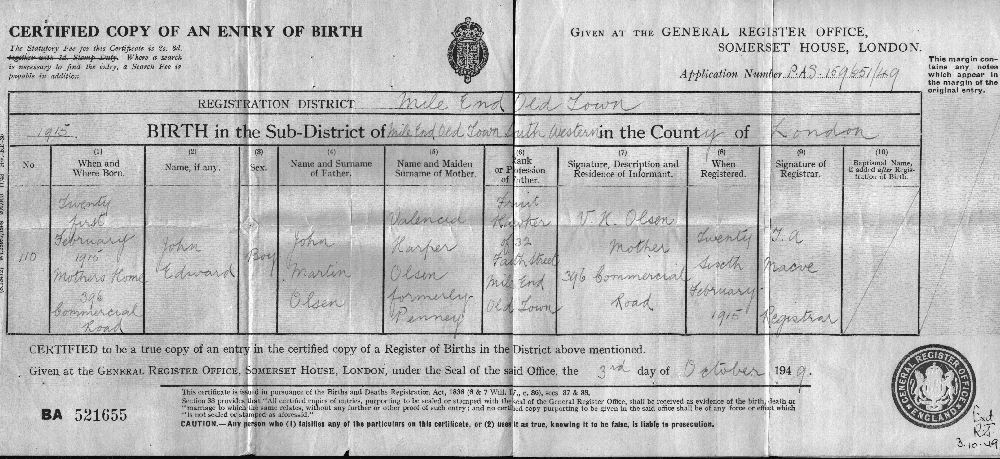 CERTIFIED COPY OF AN ENTRY OF BIRTH
The Statutory Fee for this Certificate is 2s. 6d.
together with 1d. Stamp Duty. Where a search
is necessary to find the entry, a Search Fee is
payable in addition.
GIVEN AT THE GENERAL REGISTER OFFICE,
SOMERSET HOUSE, LONDON.
Application Number PAS 159651/49
This margin con-
tains any notes
which appear in
the margin of the
original entry.
REGISTRATION DISTRICT Mile End Old Town
1915 BIRTH in the Sub-District of Mile End Old Town South Western in the County of London
No.
(1)
When and
Where Born.
(2)
Name, if any.
(3)
Sex.
(4)
Name and Surname
of Father.
(5)
Name and Maiden
Surname of Mother.
(6)
Rank
or Profession
of Father.
(7)
Signature, Description and
Residence of Informant.
(8)
When
Registered.
(9)
Signature of
Registrar.
(10)
Baptismal Name,
if added after Regis-
tration of Birth.
110
Twenty
first
February
1915
Mothers Home
396
Commercial
Road
John
Edward
Boy
John
Martin
Olsen
Valencia
Harper
Olsen
formerly
Penney
Fruit
Hawker
of 32
Faith Street
Mile End
Old Town
V. H. Olsen
Mother
396 Commercial
Road
Twenty
Sixth
February
1915
T. A
Macve
Registrar
CERTIFIED to be a true copy of an entry in the certified copy of a Register of Births in the District above mentioned.
Given at the GENERAL REGISTER OFFICE, SOMERSET HOUSE, LONDON, under the Seal of the said Office, the 3rd day of October 1949.
This certificate is issued in pursuance of the Births and Deaths Registration Act, 1836 (6 & 7 Will. IV., c. 86), secs. 37 & 38.
Section 38 provides that "All certified copies of entries, purporting to be sealed or stamped with the seal of the General Register Office, shall be received as evidence of the birth, death or
"marriage to which the same relates, without any further or other proof of such entry; and no certified copy purporting to be given in the said office shall be of any force or effect which
"is not sealed or stamped as aforesaid."
CAUTION.—Any person who (1) falsifies any of the particulars on this certificate, or (2) uses it as true, knowing it to be false, is liable to prosecution.
BA 521655
GENERAL REGISTER OFFICE
ENGLAND
3.10.49